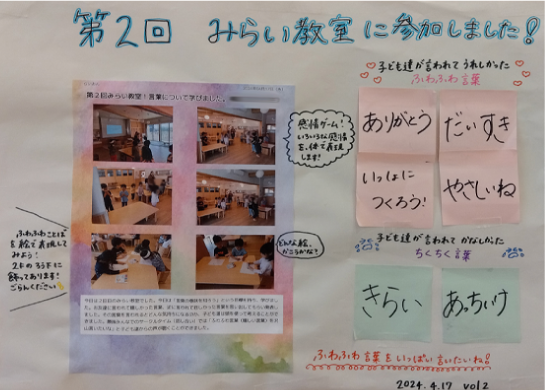 第2回 みらい教室に参加しました!
第2回みらい教室!言葉について学びました。
感情ゲーム!
いろいろな感情
を、体で表現
します!
ふわふわことば
を絵で表現して
みよう!
2Fのろうかに
飾ってあります!
ごらんください
どんな絵、
かこうかな?
子ども達が言われてうれしかった
ふわふわ言葉
ありがとう
だいすき
いっしょに
つくろう!
やさしいね
子ども達が言われてかなしかった
ちくちく言葉
きらい
あっちいけ
ふわふわ言葉をいっぱい言いたいね!
2024.4.17 vol2